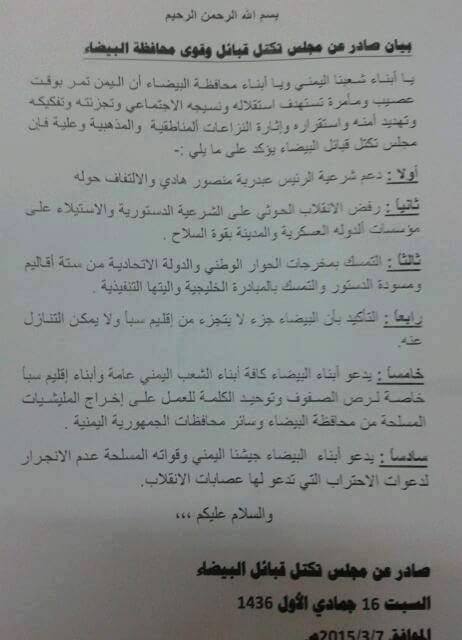 بسم الله الرحمن الرحيم
بيان صادر عن مجلس تكتل قبائل وقوى محافظة البيضاء
يا أبناء شعبنا اليمني ويا أبناء محافظة البيضاء أن اليمن تمر بوقت
عصيب ومأمرة تستهدف استقلاله ونسيجه الاجتماعي وتجزئته وتفكيكه
وتهديد أمنه واستقراره وإثارة النزاعات المناطقية والمذهبية وعلية فإن
مجلس تكتل قبائل البيضاء يؤكد على ما يلي :-
أولا : دعم شرعية الرئيس عبدربة منصور هادي والالتفاف حوله
ثانياً : رفض الانقلاب الحوثي على الشرعية الدستورية والاستيلاء على
مؤسسات ألدوله العسكرية والمدينة بقوة السلاح .
ثالثاً : التمسك بمخرجات الحوار الوطني والدولة الاتحادية من ستة أقاليم
ومسودة الدستور والتمسك بالمبادرة الخليجية واليتها التنفيذية .
رابعاً : التأكيد بأن البيضاء جزء لا يتجزء من إقليم سبأ ولا يمكن التنازل
عنه.
خامساً : يدعو أبناء البيضاء كافة أبناء الشعب اليمني عامة وأبناء إقليم سبأ
خاصة لرص الصفوف وتوحيد الكلمة للعمل على إخراج المليشيات
المسلحة من محافظة البيضاء وسائر محافظات الجمهورية اليمنية .
سادساً : يدعو أبناء البيضاء جيشنا اليمني وقواته المسلحة عدم الانجرار
لدعوات الاحتراب التي تدعو لها عصابات الانقلاب .
والسلام عليكم ،،،
صادر عن مجلس تكتل قبائل البيضاء
السبت 16 جمادي الأول 1436
الموافق 2015/3/7م